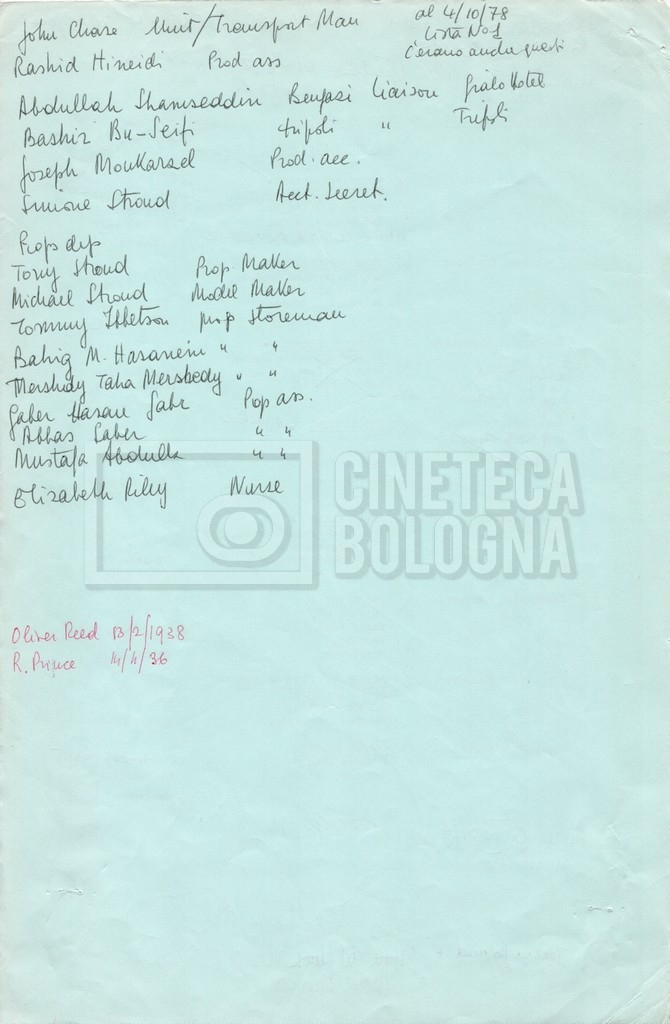 John Chase Unit/Transport Man
al 4/10/78
Lista No 1
c'erano anche questi
Rashid Hineidi Prod ass
Abdullah Shamseddin Bengasi Liaison Gialo Hotel
Bashir Bu-Seifi Tripoli " Tripoli
Joseph Moukarzel Prod. acc.
Simone Stroud Acct. Secret.
Props dep
Tony Stroud Prop Maker
Michael Stroud Model Maker
Tommy Ibbetson prop Storeman
Bahig M. Hasanein " "
Mershdy Taha Mershedy " "
Gaber Hasan Gabr Prop ass.
Abbas Saber " "
Mustafa Abdulla " "
Elizabeth Riley Nurse
CINETECA
BOLOGNA
Oliver Reed 13/2/1938
R. Prince 14/11/36